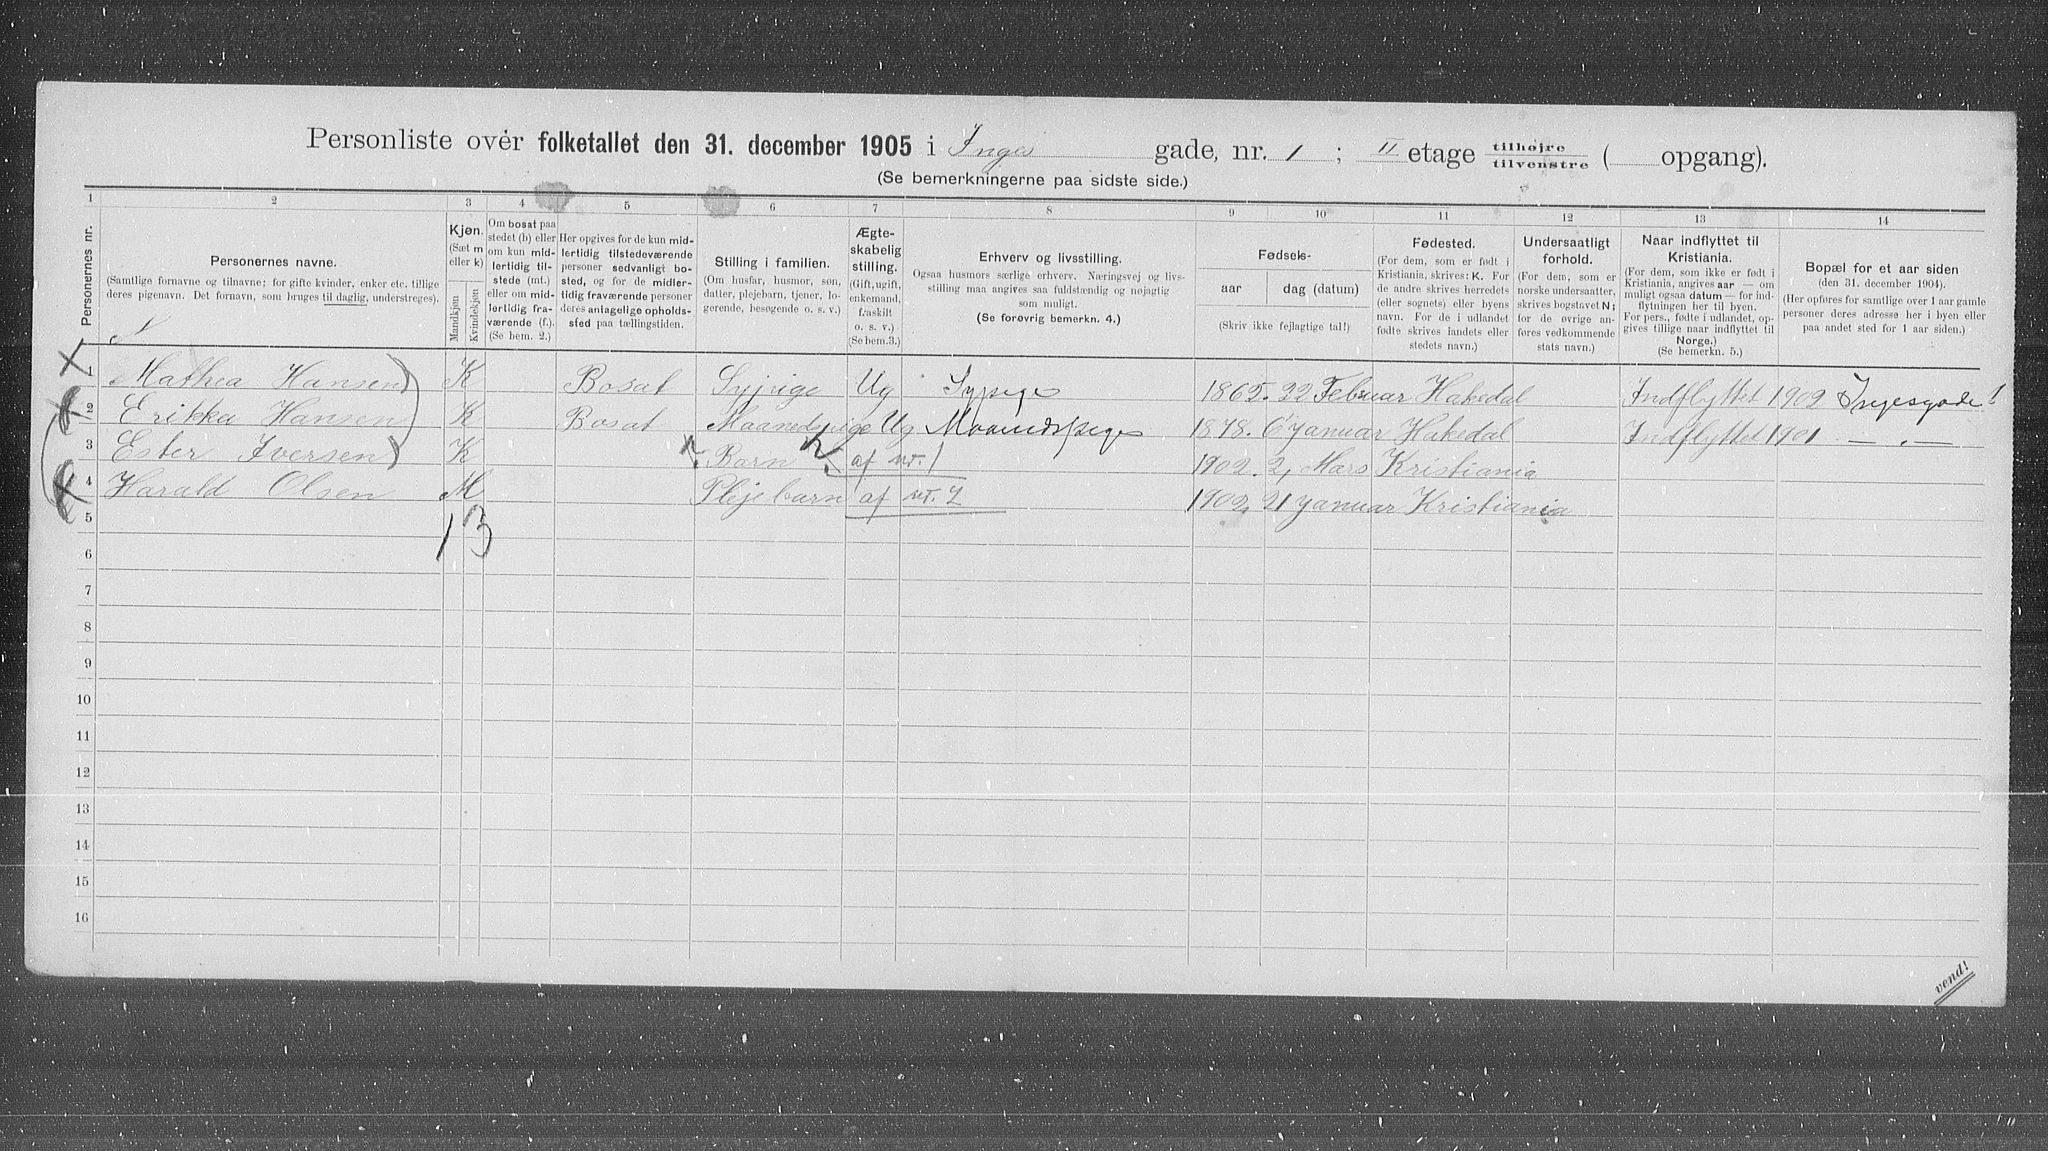 Personliste over folketallet den 31. december 1905 i Inges gade, nr. 1 ; II etage tilhøjre tilvenstre ( opgang).
(Se bemerkningerne paa sidste side.)
1 2 3 4 5 6 7 8 9 10 11 12 13 14
Personernes nr.
Personernes navne.
(Samtlige fornavne og tilnavne; for gifte kvinder, enker etc. tillige
deres pigenavn. Det fornavn, som bruges til daglig, understreges).
Kjøn.
(Sæt m
eller k)
Mandkjøn
Kvindekjøn
Om bosat paa
stedet (b) eller
om kun mid-
lertidig til-
stede (mt.)
eller om mid-
lertidig fra-
værende (f.)
(Se bem. 2.)
Her opgives for de kun mid-
lertidig tilstedeværende
personer sedvanligt bo-
sted, og for de midler-
tidig fraværende personer
deres anlagelige opholds-
sted paa tællingstiden.
Stilling i familien.
(Om husfar, husmor, søn,
datter, plejebarn, tjener, lo-
gerende, besøgende o. s. v.)
Ægte-
skabelig
stilling.
(Gift, ugift,
enkemand,
fraskilt
o. s. v.)
(Se bem.3.)
Erhverv og livsstilling.
Ogsaa husmors særlige erhverv. Næringsvej og livs-
stilling maa angives saa fuldstændig og nøjagtig
som muligt.
(Se forøvrig bemerkn. 4.)
Fødsels-
aar
dag (datum)
(Skriv ikke fejlagtige tal!)
Fødested.
(For dem, som er født i
Kristiania, skrives: K. For
de andre skrives herredets
(eller sognets) eller byens
navn. For de i udlandet
fødte skrives landets eller
stedets navn.)
Undersaatligt
forhold.
(For dem, som er
norske undersaatter,
skrives bogstavet N;
for de øvrige an-
føres vedkommende
stats navn.)
Naar indflyttet til
Kristiania.
(For dem, som ikke er født i
Kristiania, angives aar — om
muligt ogsaa datum — for ind-
flytningen her til byen.
For pers., fødte i udlandet, op-
gives tillige naar indflyttet til
Norge.)
(Se bemerkn. 5.)
Bopæl for et aar siden
(den 31. december 1904).
(Her opføres for samtlige over 1 aar gamle
personer deres adresse her i byen eller
paa andet sted for 1 aar siden.)
1 Mathea Hansen K Bosat Syjpige Ug Sypige 1865. 22 Februar Hakedal Indflyttet 1902 Ingesgade 1
2 Erikka Hansen K Bosat Maanedspige Ug Maanedspige 1878. 6 januar Hakedal Indflyttet 1901 — . —
3 Ester Iversen K Barn af nr. 1 1902. 2, Mars Kristiania
4 Harald Olsen M Plejebarn af nr. 2 1902. 21 januar Kristiania
5 1 3
6
7
8
9
10
11
12
13
14
15
16
vend!